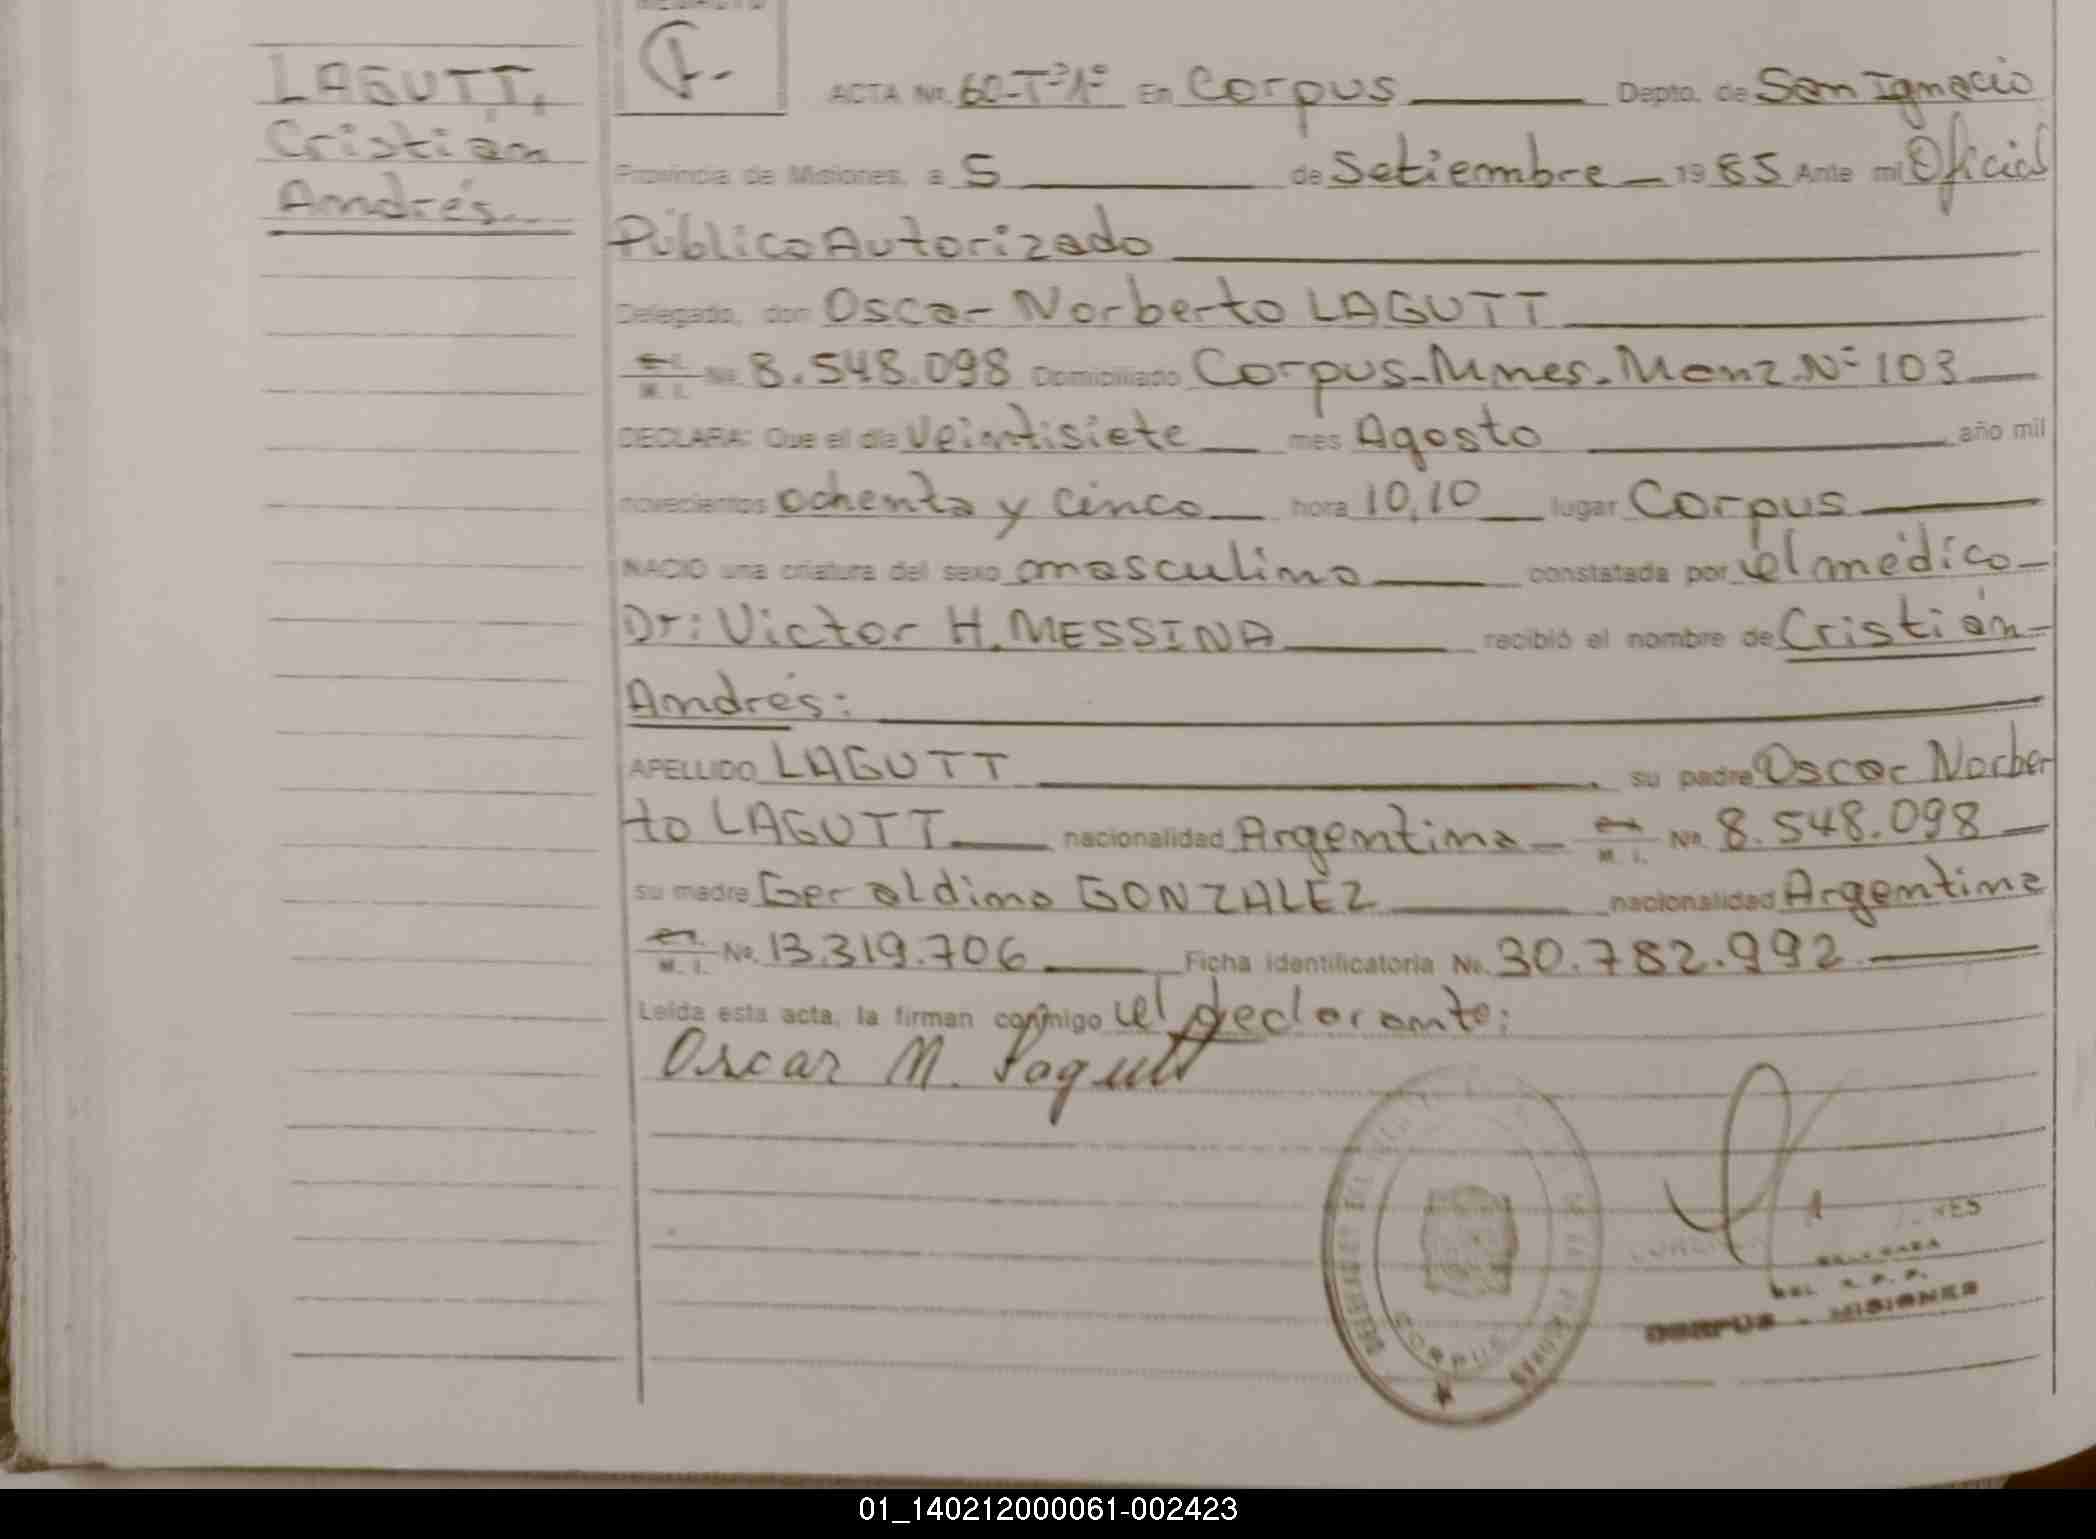 LAGUTT,
Cristián
Andrés.
ACTA Nº. 60-Tº1º En Corpus Depto. de San Ignacio
Provincia de Misiones, a 5 de Setiembre 1985 Ante mi Oficial
Público Autorizado
Delegado, don Oscar Norberto LAGUTT
M. I. No. 8.548.098 Domiciliado Corpus-Mnes. Manz. Nº 103
DECLARA: Que el día Veintisiete mes Agosto año mil
novecientos ochenta y cinco hora 10,10 lugar Corpus
NACIO una criatura del sexo masculino constatada por el médico
Dr: Victor H. MESSINA recibió el nombre de Cristián
Andrés:
APELLIDO LAGUTT su padre Oscar Norber
to LAGUTT nacionalidad Argentina M. I. No. 8.548.098
su madre Geraldina GONZALEZ nacionalidad Argentina
M. I. No. 13.319.706 Ficha identificatoria No. 30.782.992
Leída esta acta, la firman conmigo el declarante:
Oscar N. Lagutt
CORPUS
CORPUS - MISIONES
01_140212000061-002423